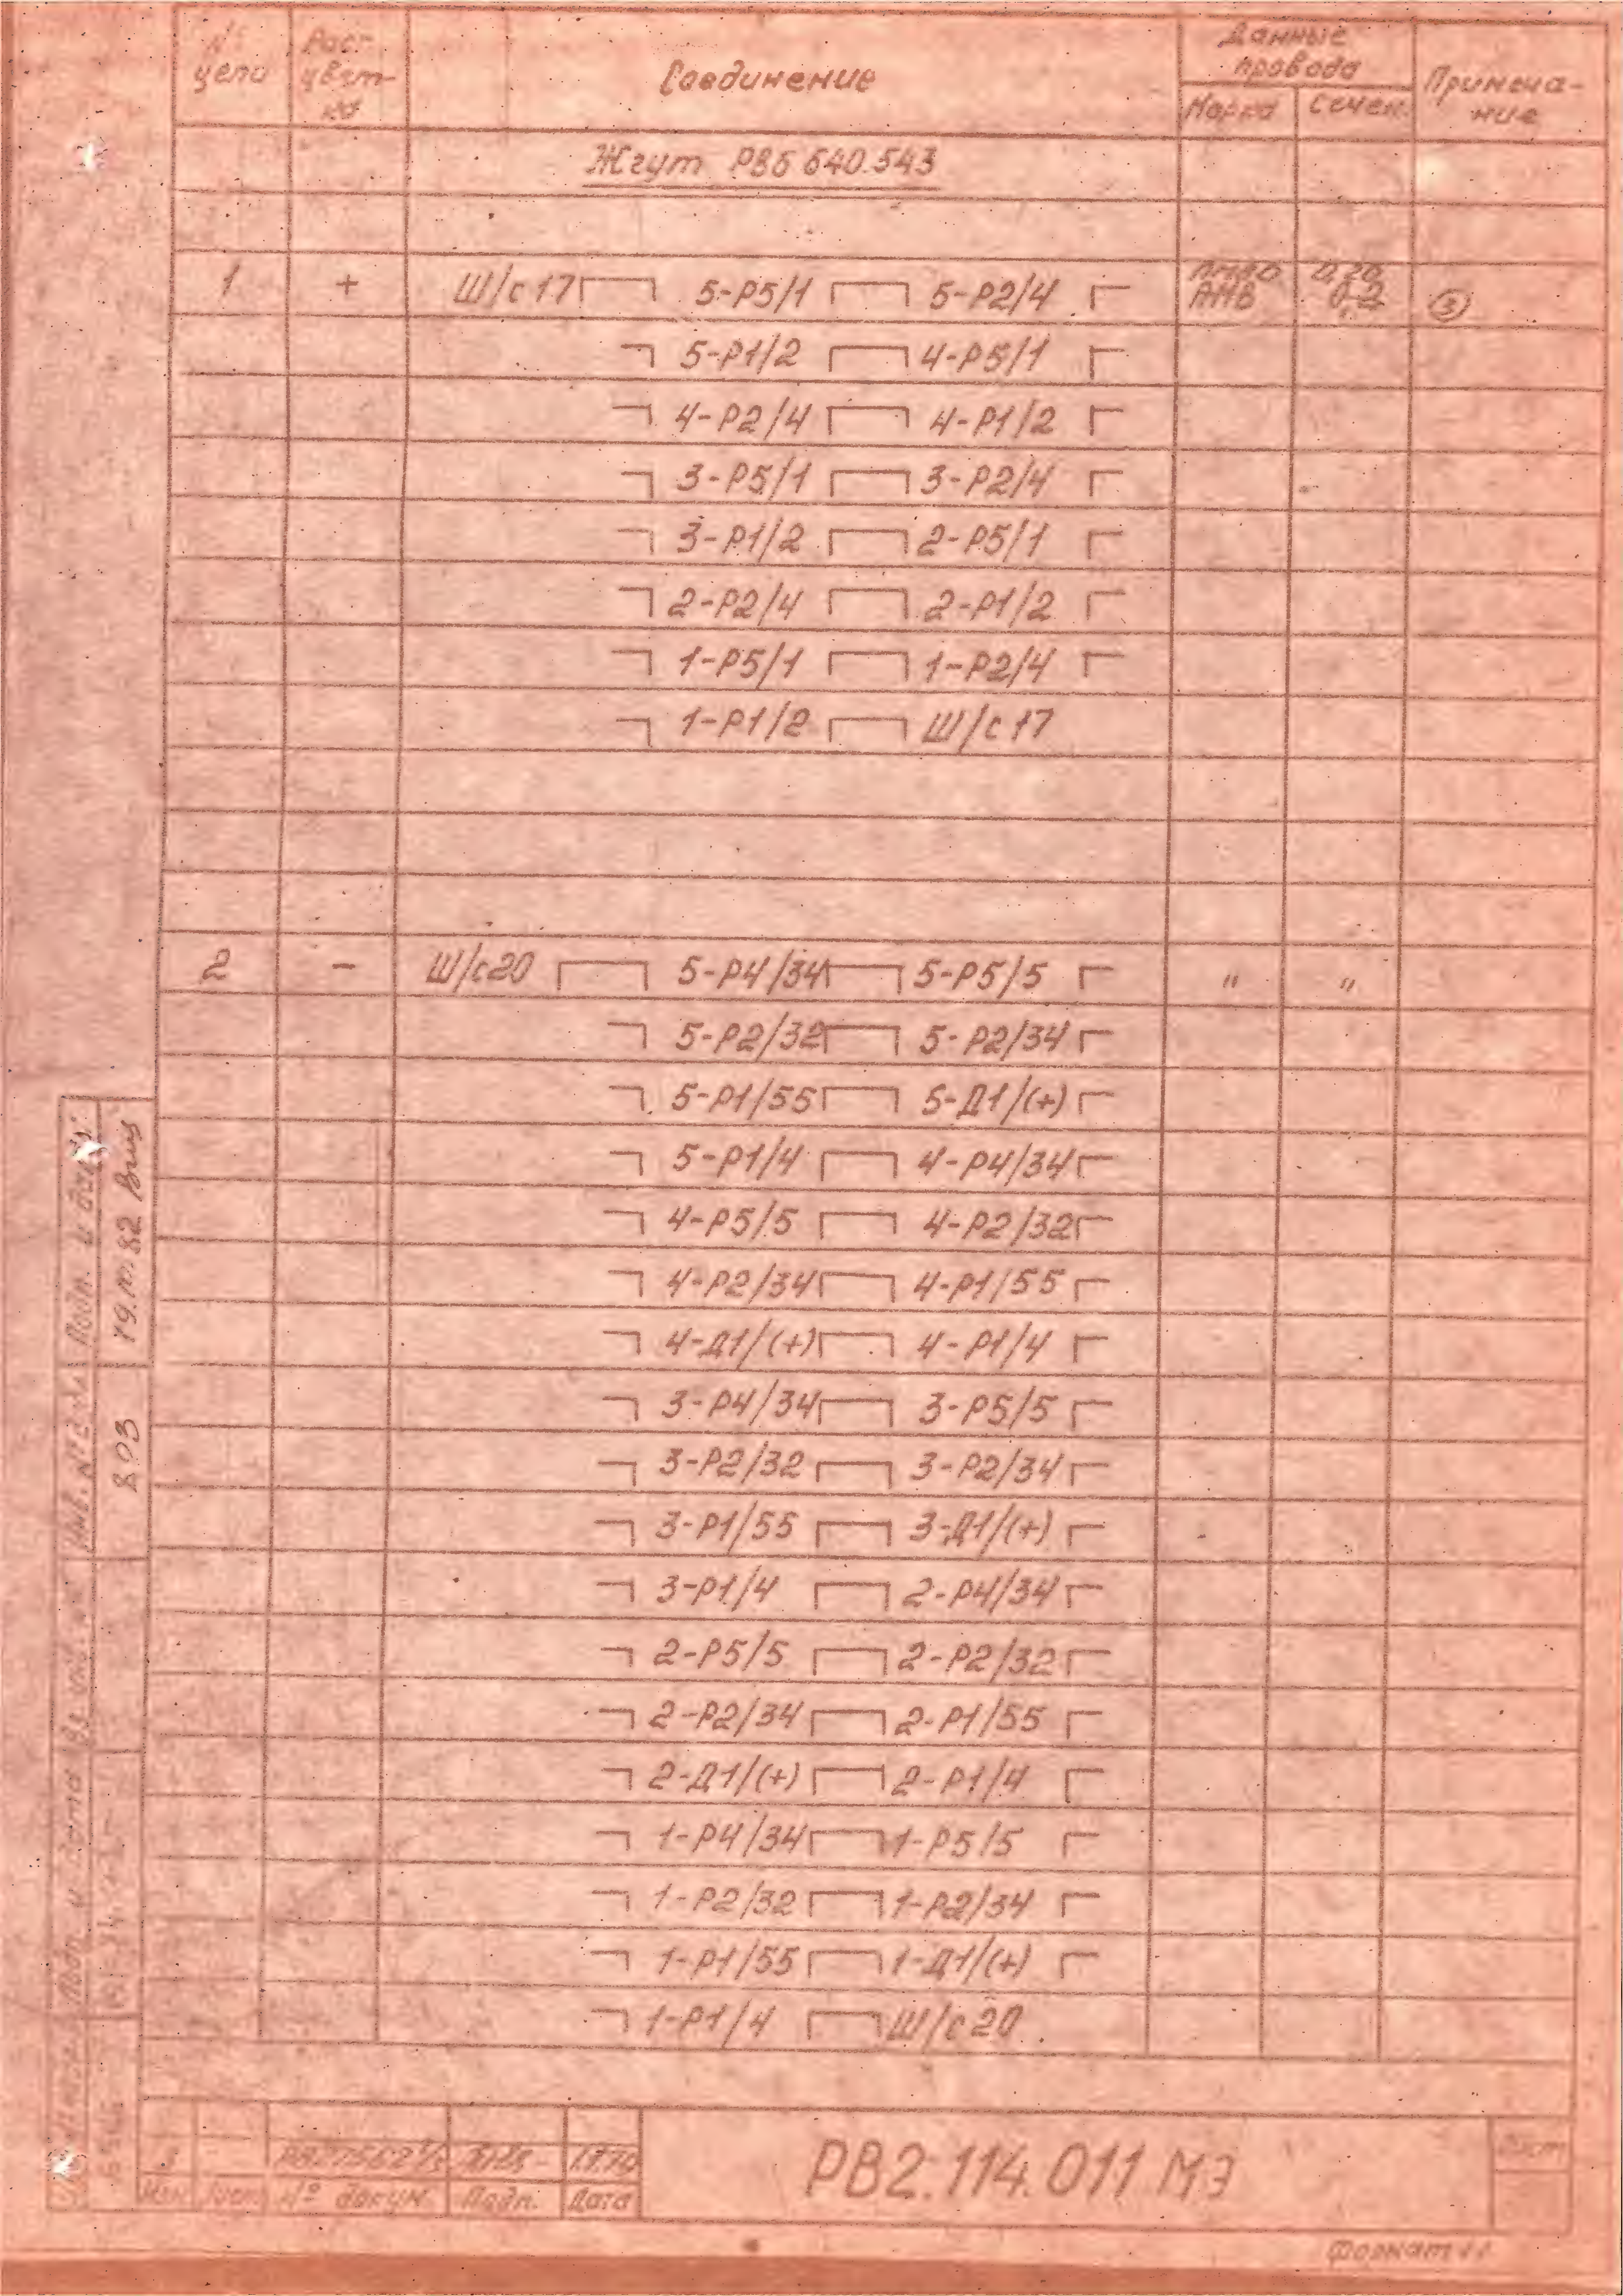 № цепи Расцвет-ка Соединение Данные провода Примеча-ние
Марка Сечен.
Жгут РВ6 640.543
1 + Ш/с17 5-Р5/1 5-Р2/4 АМВ 0,2 ③
5-Р1/2 4-Р5/1
4-Р2/4 4-Р1/2
3-Р5/1 3-Р2/4
3-Р1/2 2-Р5/1
2-Р2/4 2-Р1/2
1-Р5/1 1-Р2/4
1-Р1/2 Ш/с17
2 - Ш/с20 5-Р4/34 5-Р5/5 " "
5-Р2/32 5-Р2/34
5-Р1/55 5-Д1/(+)
5-Р1/4 4-Р4/34
4-Р5/5 4-Р2/32
4-Р2/34 4-Р1/55
4-Д1/(+) 4-Р1/4
3-Р4/34 3-Р5/5
3-Р2/32 3-Р2/34
3-Р1/55 3-Д1/(+)
3-Р1/4 2-Р4/34
2-Р5/5 2-Р2/32
2-Р2/34 2-Р1/55
2-Д1/(+) 2-Р1/4
1-Р4/34 1-Р5/5
1-Р2/32 1-Р2/34
1-Р1/55 1-Д1/(+)
1-Р1/4 Ш/с20
Подп. и дата
19.10.82
803
Изм Лист № докум. Подп. Дата
РВ2.114.011 МЭ
Лист
Формат 11